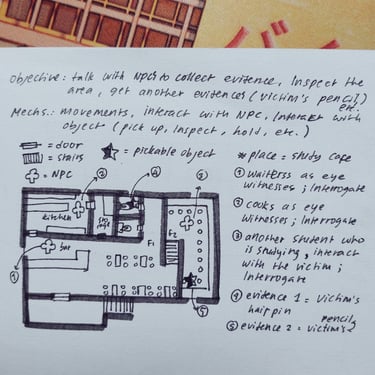 バ
Objective: talk with NPCs to collect evidence, Inspect the
area, get another evidences (victim's pencil)
etc.
Mechs.: movements, interact with NPC, Interact with
object (pick up, inspect, hold, etc.)
= door
= stairs
= pickable object
= NPC
* place = study cafe
① waiterss as eye
witnesses; Interrogate
② cooks as eye
witnesses; Interrogate
③ another student who
is studying, interact
with the victim;
Interrogate
④ evidence 1 = victim's
hairpin
⑤ evidence 2 = victim's pencil
kitchen
bar
F1
F2
①
②
③
④
⑤